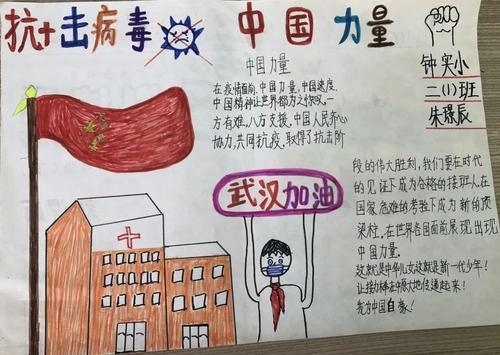 抗击病毒 中国力量
钟实小
二(1)班
朱璟辰
中国力量
在疫情面前,中国力量,中国速度,
中国精神让世界都为之惊叹,一
方有难,八方支援,中国人民齐心
协力,共同抗疫,取得了抗击阶
段的伟大胜利,我们要在时代
的见证下成为合格的接班人在
国家危难的考验下成为新的顶
梁柱,在世界各国面前展现出现
中国力量.
这就是中华儿女这就是新一代少年!
让接力棒在中原大地传递起来!
我为中国自豪!
武汉加油